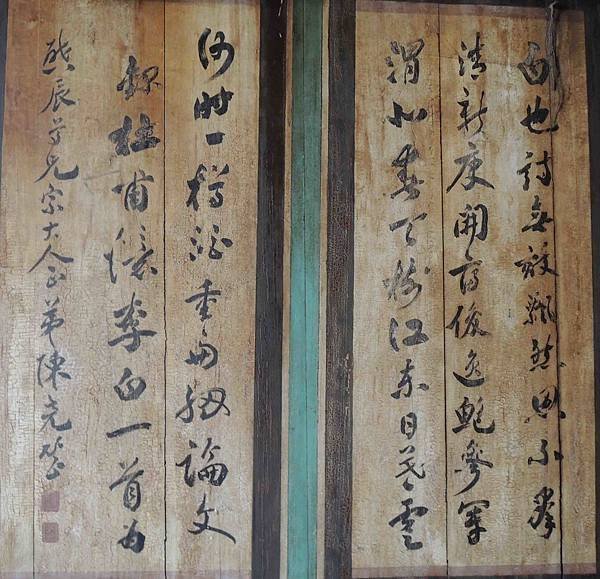 白也詩無敵飄然思不羣
清新庾開府俊逸鮑參軍
渭北春天樹江東日暮雲
何時一樽酒重與細論文
錄杜甫憶李白一首為
熙辰學兄宗大人正弟陳克